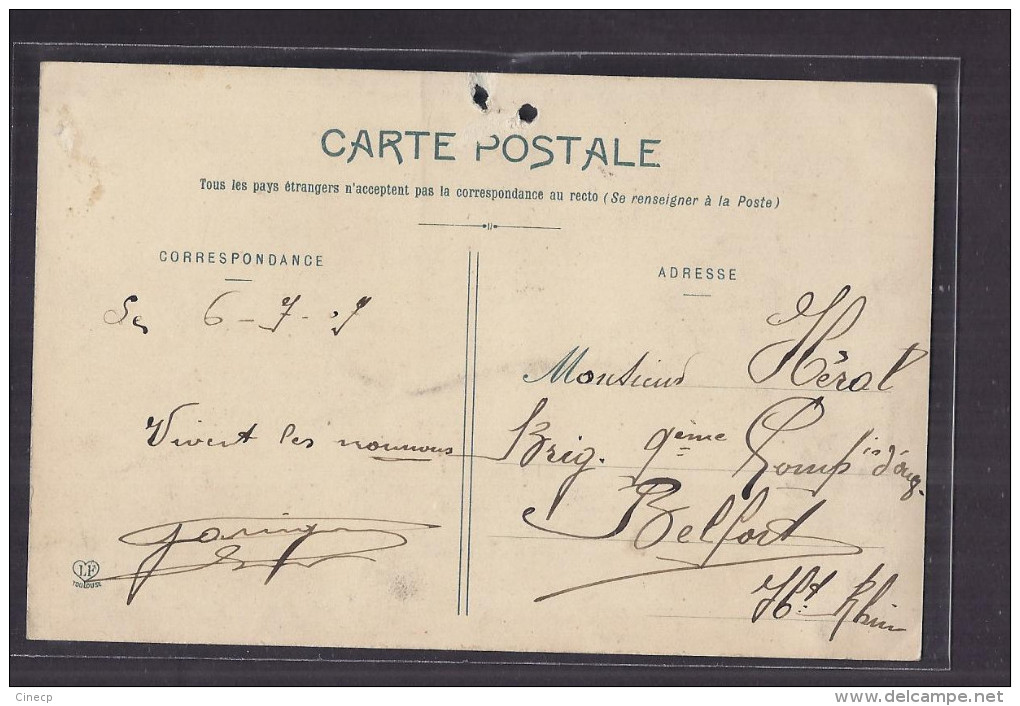 CARTE POSTALE
Tous les pays étrangers n'acceptent pas la correspondance au recto (Se renseigner à la Poste)
CORRESPONDANCE
ADRESSE
6-7-
Vivent les nounous
Monsieur Héral
Brig. 9ème Comp
Belfort
Ht Rhin
LF
TOULOUSE
Cinecp
www.delcampe.net